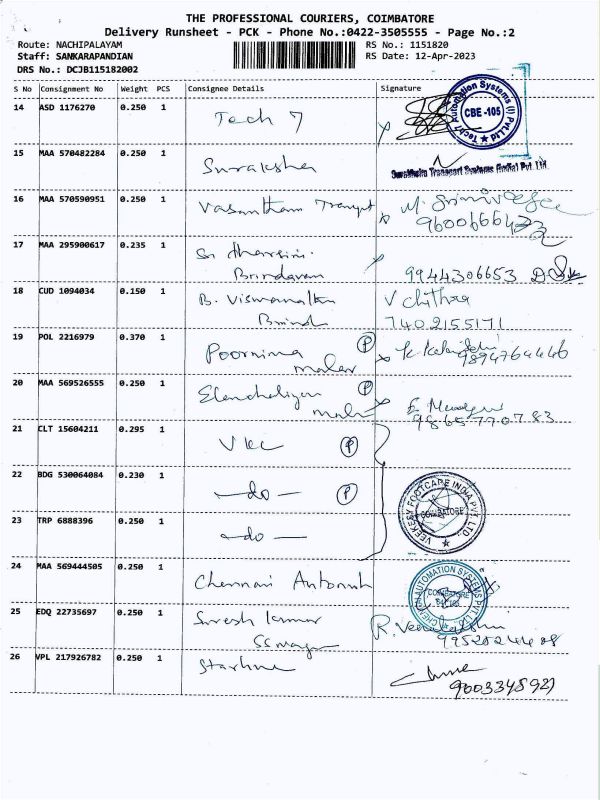 THE PROFESSIONAL COURIERS, COIMBATORE
Delivery Runsheet - PCK - Phone No.:0422-3505555 - Page No.:2
Route: NACHIPALAYAM RS No.: 1151820
Staff: SANKARAPANDIAN RS Date: 12-Apr-2023
DRS No.: DCJB115182002
S No Consignment No Weight PCS Consignee Details Signature
14 ASD 1176270 0.250 1 Tech 7 Tech7 Automation Systems (I) Pvt Ltd CBE -105
15 MAA 570482284 0.250 1 Suraksha Suraksha Transport Systems (India) Pvt. Ltd.
16 MAA 570590951 0.250 1 Vasantham M.
17 MAA 295900617 0.235 1 Sri Brindavan 9944306653
18 CUD 1094034 0.150 1 B. Viswanathan V Chithra
Brind 7402155171
19 POL 2216979 0.370 1 Poornima P K.
malar 9894764446
20 MAA 569526555 0.250 1 P E
9865770783
21 CLT 15604211 0.295 1 VKC P
22 BDG 530064084 0.230 1 -do- P VEEKESY FOOTCARE INDIA PVT. LTD., COIMBATORE
23 TRP 6888396 0.250 1 -do-
24 MAA 569444505 0.250 1 Chennai AUTOMATION SYSTEMS PVT. LTD. COIMBATORE
25 EDQ 22735697 0.250 1 Suresh kumar R.
SS
26 VPL 217926782 0.250 1 Starline